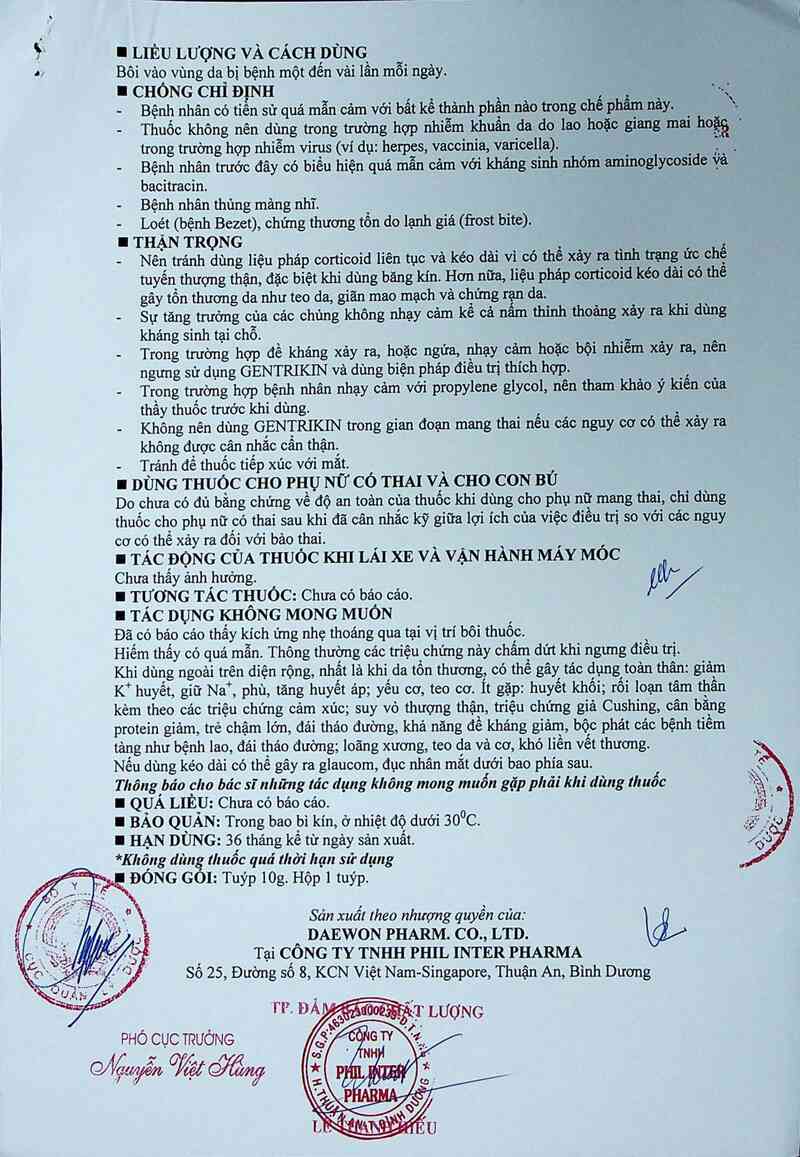 ■ LIỀU LƯỢNG VÀ CÁCH DÙNG
Bôi vào vùng da bị bệnh một đến vài lần mỗi ngày.
■ CHỐNG CHỈ ĐỊNH
- Bệnh nhân có tiền sử quá mẫn cảm với bất kể thành phần nào trong chế phẩm này.
- Thuốc không nên dùng trong trường hợp nhiễm khuẩn da do lao hoặc giang mai hoặc
trong trường hợp nhiễm virus (ví dụ: herpes, vaccinia, varicella).
- Bệnh nhân trước đây có biểu hiện quá mẫn cảm với kháng sinh nhóm aminoglycoside và
bacitracin.
- Bệnh nhân thủng màng nhĩ.
- Loét (bệnh Bezet), chứng thương tổn do lạnh giá (frost bite).
■ THẬN TRỌNG
- Nên tránh dùng liệu pháp corticoid liên tục và kéo dài vì có thể xảy ra tình trạng ức chế
tuyến thượng thận, đặc biệt khi dùng băng kín. Hơn nữa, liệu pháp corticoid kéo dài có thể
gây tổn thương da như teo da, giãn mao mạch và chứng rạn da.
- Sự tăng trưởng của các chủng không nhạy cảm kể cả nấm thỉnh thoảng xảy ra khi dùng
kháng sinh tại chỗ.
- Trong trường hợp đề kháng xảy ra, hoặc ngứa, nhạy cảm hoặc bội nhiễm xảy ra, nên
ngưng sử dụng GENTRIKIN và dùng biện pháp điều trị thích hợp.
- Trong trường hợp bệnh nhân nhạy cảm với propylene glycol, nên tham khảo ý kiến của
thầy thuốc trước khi dùng.
- Không nên dùng GENTRIKIN trong gian đoạn mang thai nếu các nguy cơ có thể xảy ra
không được cân nhắc cẩn thận.
- Tránh để thuốc tiếp xúc với mắt.
■ DÙNG THUỐC CHO PHỤ NỮ CÓ THAI VÀ CHO CON BÚ
Do chưa có đủ bằng chứng về độ an toàn của thuốc khi dùng cho phụ nữ mang thai, chỉ dùng
thuốc cho phụ nữ có thai sau khi đã cân nhắc kỹ giữa lợi ích của việc điều trị so với các nguy
cơ có thể xảy ra đối với bào thai.
■ TÁC ĐỘNG CỦA THUỐC KHI LÁI XE VÀ VẬN HÀNH MÁY MÓC
Chưa thấy ảnh hưởng.
■ TƯƠNG TÁC THUỐC: Chưa có báo cáo.
■ TÁC DỤNG KHÔNG MONG MUỐN
Đã có báo cáo thấy kích ứng nhẹ thoáng qua tại vị trí bôi thuốc.
Hiếm thấy có quá mẫn. Thông thường các triệu chứng này chấm dứt khi ngưng điều trị.
Khi dùng ngoài trên diện rộng, nhất là khi da tổn thương, có thể gây tác dụng toàn thân: giảm
K⁺ huyết, giữ Na⁺, phù, tăng huyết áp; yếu cơ, teo cơ. Ít gặp: huyết khối; rối loạn tâm thần
kèm theo các triệu chứng cảm xúc; suy vỏ thượng thận, triệu chứng giả Cushing, cân bằng
protein giảm, trẻ chậm lớn, đái tháo đường, khả năng đề kháng giảm, bộc phát các bệnh tiềm
tàng như bệnh lao, đái tháo đường; loãng xương, teo da và cơ, khó liền vết thương.
Nếu dùng kéo dài có thể gây ra glaucom, đục nhân mắt dưới bao phía sau.
Thông báo cho bác sĩ những tác dụng không mong muốn gặp phải khi dùng thuốc
■ QUÁ LIỀU: Chưa có báo cáo.
■ BẢO QUẢN: Trong bao bì kín, ở nhiệt độ dưới 30⁰C.
■ HẠN DÙNG: 36 tháng kể từ ngày sản xuất.
*Không dùng thuốc quá thời hạn sử dụng
■ ĐÓNG GÓI: Tuýp 10g. Hộp 1 tuýp.
Sản xuất theo nhượng quyền của:
DAEWON PHARM. CO., LTD.
Tại CÔNG TY TNHH PHIL INTER PHARMA
Số 25, Đường số 8, KCN Việt Nam-Singapore, Thuận An, Bình Dương
SỞ Y TẾ
CỤC QUẢN LÝ DƯỢC
TẾ
DƯỢC
TP. ĐẢM CHẤT LƯỢNG
CÔNG TY
TNHH
PHIL INTER
PHARMA
H.THUẬN AN - T.BÌNH DƯƠNG
PHÓ CỤC TRƯỞNG
Nguyễn Việt Hùng